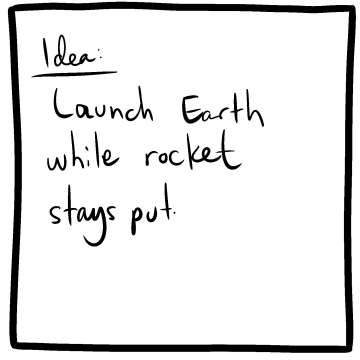 Idea:
Launch Earth
while rocket
stays put.